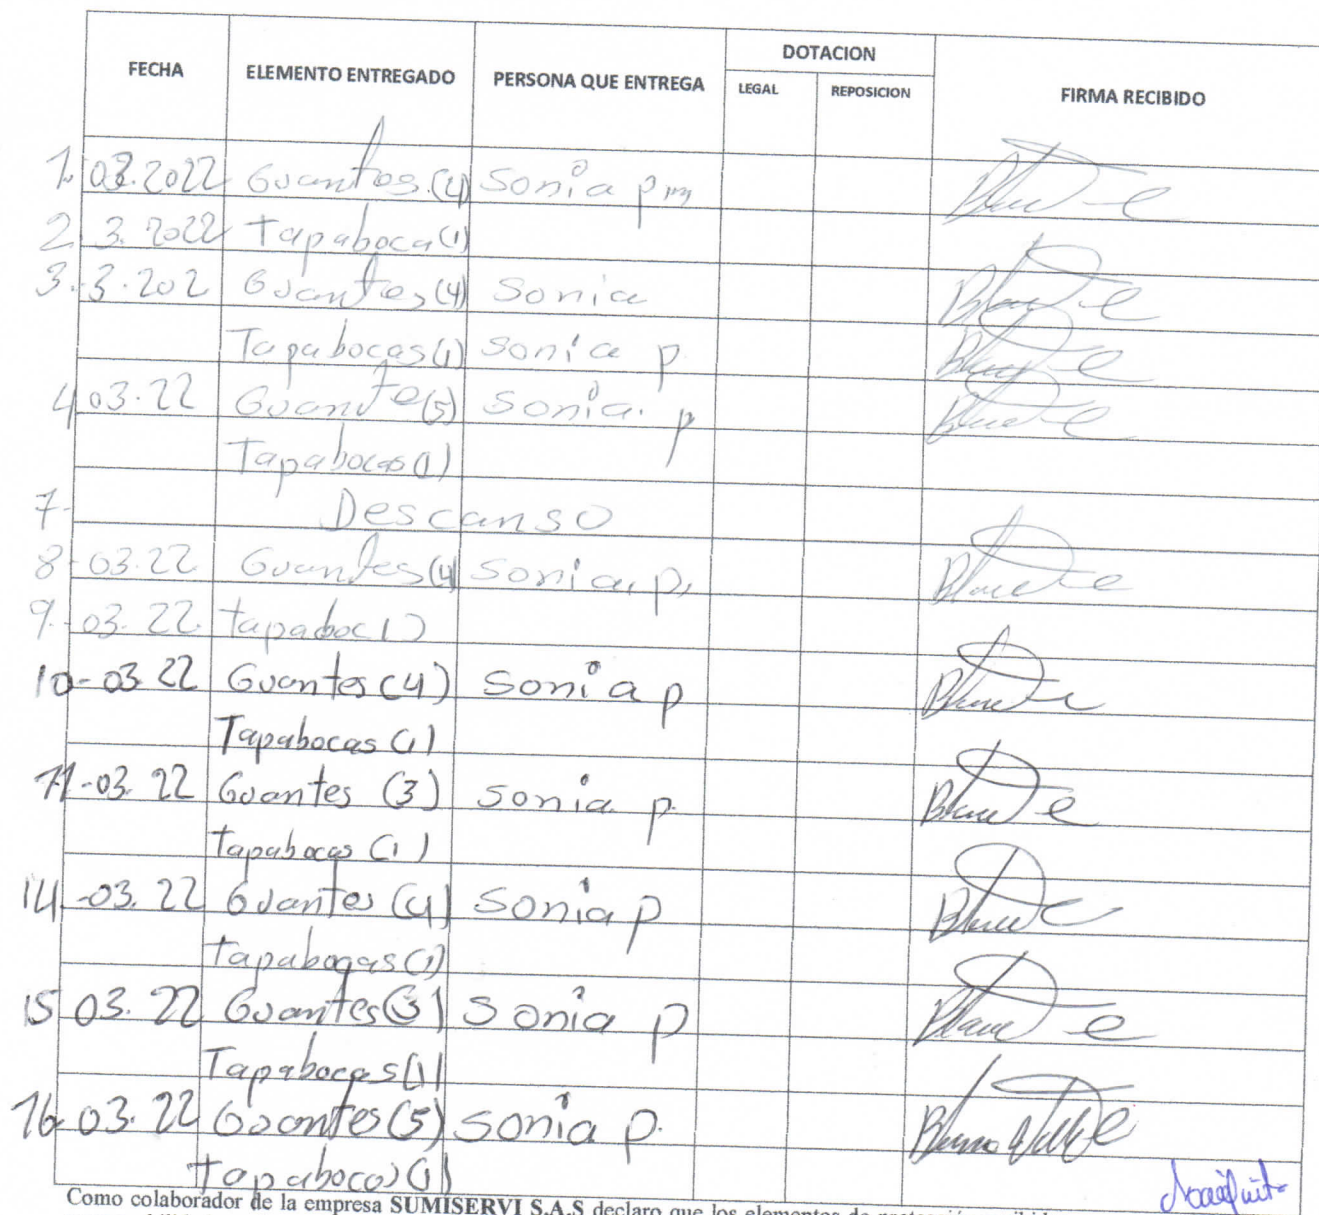 FECHA ELEMENTO ENTREGADO PERSONA QUE ENTREGA DOTACION FIRMA RECIBIDO
LEGAL REPOSICION
1. 03.2022 Guantes (4) Sonia p m
2 3. 2022 Tapaboca (1)
3. 3.202 Guantes (4) Sonia
Tapabocas (1) Sonia p.
4 03.22 Guante (5) Sonia. p
Tapabocas (1)
7- Descanso
8-03.22 Guantes (4 Sonia p,
9. 03. 22 tapaboc 1)
10-03 22 Guantes (4) Sonia p
Tapabocas (1)
11-03. 22 Guantes (3) Sonia p.
Tapabocas (1)
14-03. 22 Guantes (4) Sonia p
Tapabocas (1)
15 03. 22 Guantes (3) Sonia p
Tapabocas (1)
16-03. 22 Guantes (5) Sonia p.
Tapabocas (1)
Como colaborador de la empresa SUMISERVI S.A.S declaro que los elementos de